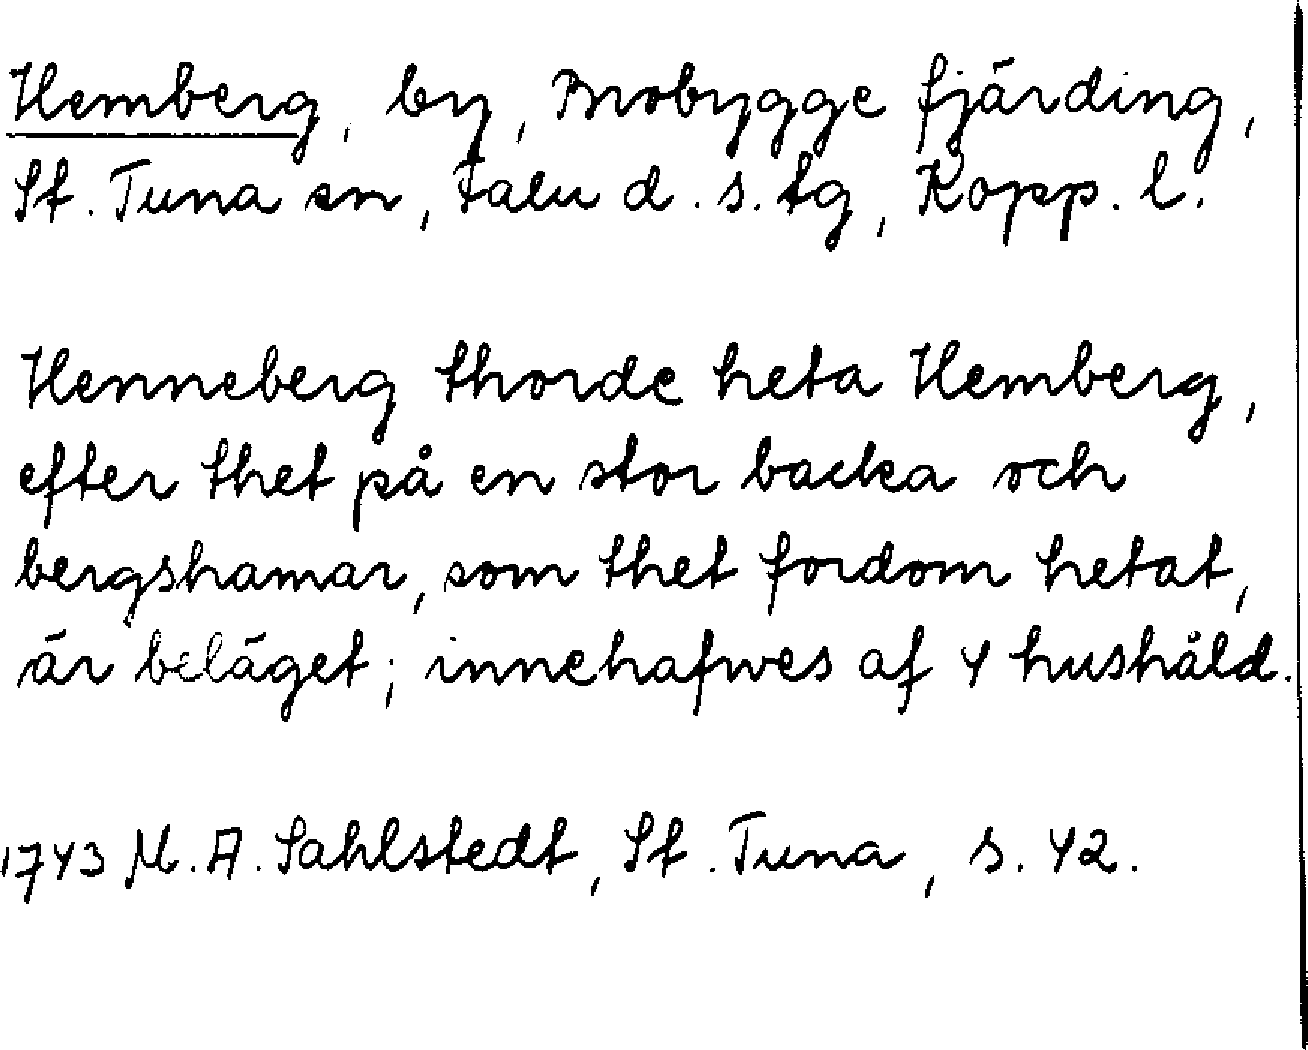 Hemberg, by, Brobygge fjärding,
St. Tuna sn, Falu d. s. tg, Kopp. l.
Henneberg thorde heta Hemberg,
efter thet på en stor backa och
bergshamar, som thet fordom hetat,
är beläget; innehafwes af 4 hushåld.
1743 M. A. Sahlstedt, St. Tuna, s. 42.